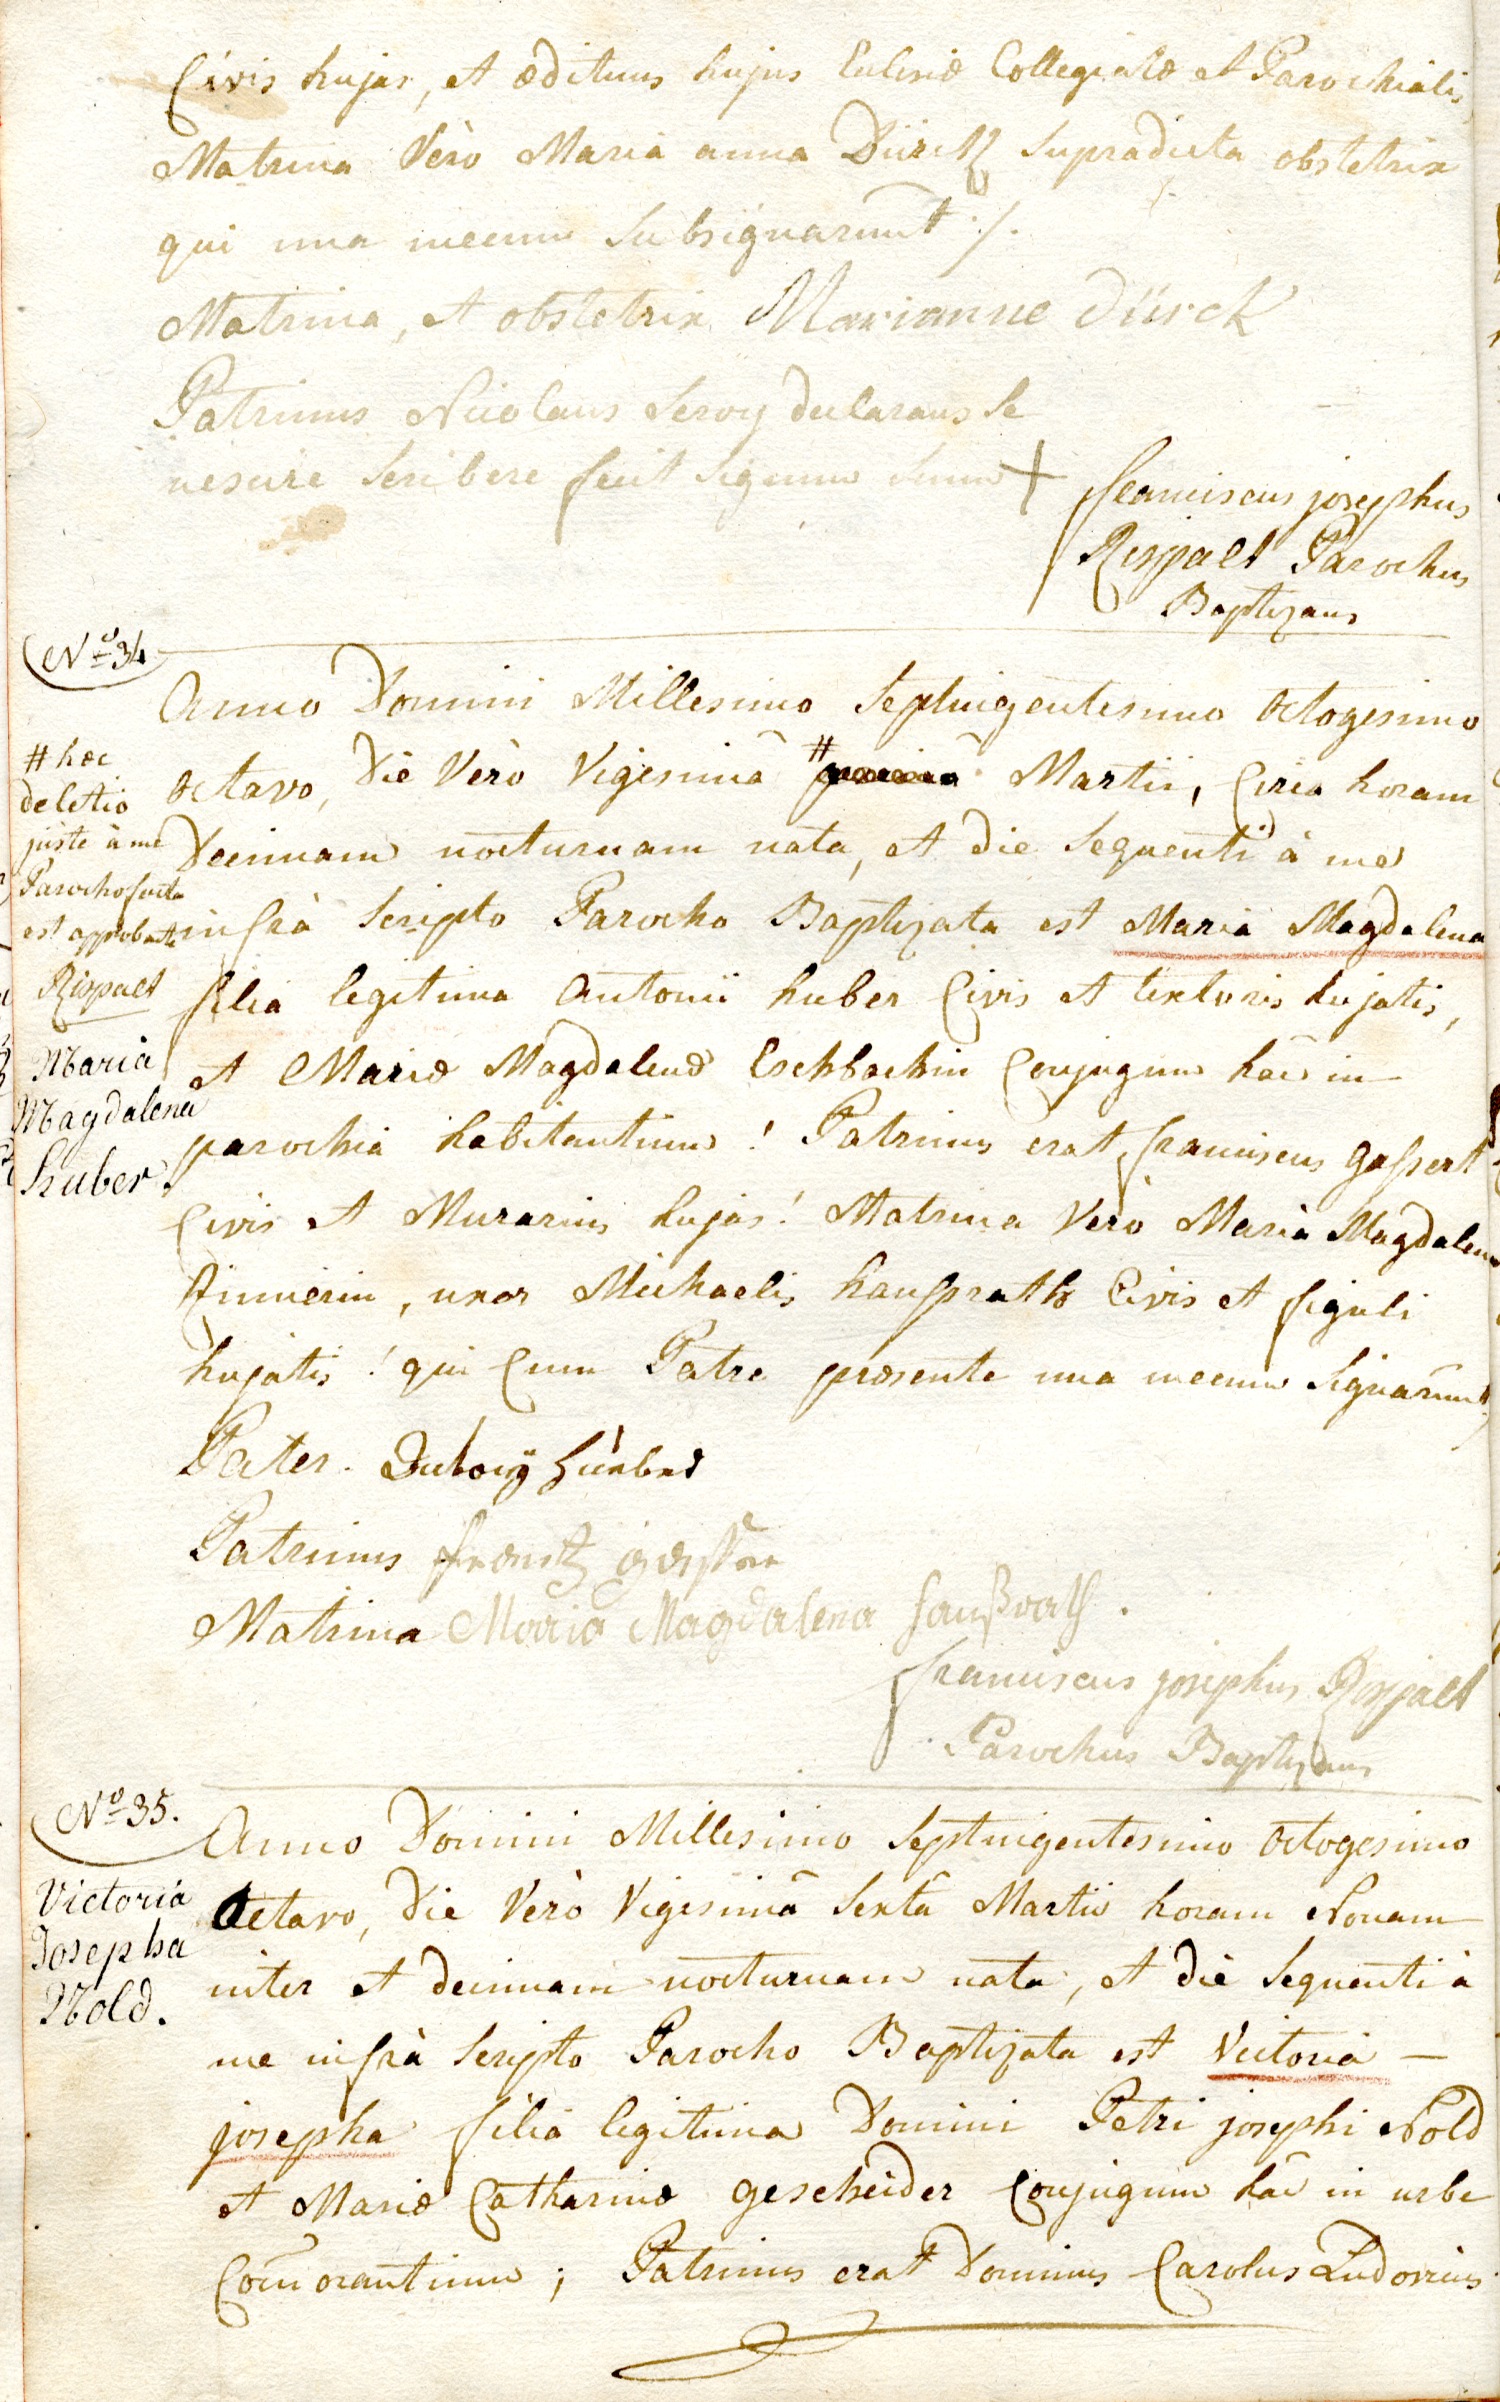 Civis hujas, et ædituus hujus Eclesiæ Collegiatæ et Parochialis
Matrina Verò Maria anna Dürck supradicta obstetrix
qui una mecum subsignarunt ./.
Matrina, et obstetrix Marianne Dürck
Patrinus Nicolaus Seroy declarans se
nescire scribere fecit signum suum +
franciscus josephus
Rispalt Parochus
Baptizans
No 34
Anno Domini Millesimo Septuigentesimo Octogesimo
octavo, die Verò Vigesimâ # Martii, Circa horam
Decimam nocturnam nata, et die sequenti à me
infrà scripto Parocho Baptizata est Maria Magdalena
filia legitima Antonii huber Civis et textoris hujatis,
et Mariæ Magdalenæ Eschbachin Conjugum hâc in
parochiâ habitantium! Patrinus erat franciscus gassert
Civis et Murarius hujas! Matrina Verò Maria Magdalena
, uxor Michaelis hausprath Civis et figuli
hujatis! qui Cum Patre præsente una mecum signarunt
# hæc
deletio
juste à me
Parocho facta
est approbante
Rispalt
Maria
Magdalena
Huber.
Pater. Antoni Hueber
Patrinus frantz gasser
Matrina Maria Magdalena haußrath.
franciscus josephus Rispalt
Parochus Baptizans
No 35.
Victoria
Josepha
Nold.
Anno Domini Millesimo Septuigentesimo Octogesimo
Octavo, die Verò Vigesimâ Sextâ Martii horam Nonam
inter et decimam nocturnam nata, et die sequenti à
me infrà scripto Parocho Baptizata est Victoria —
josepha filia legitima Domini Petri josephi Nold
et Mariæ Catharinæ gescheider Conjugum hâc in urbe
Com̃orantium; Patrinus erat Dominus Carolus Ludovicus